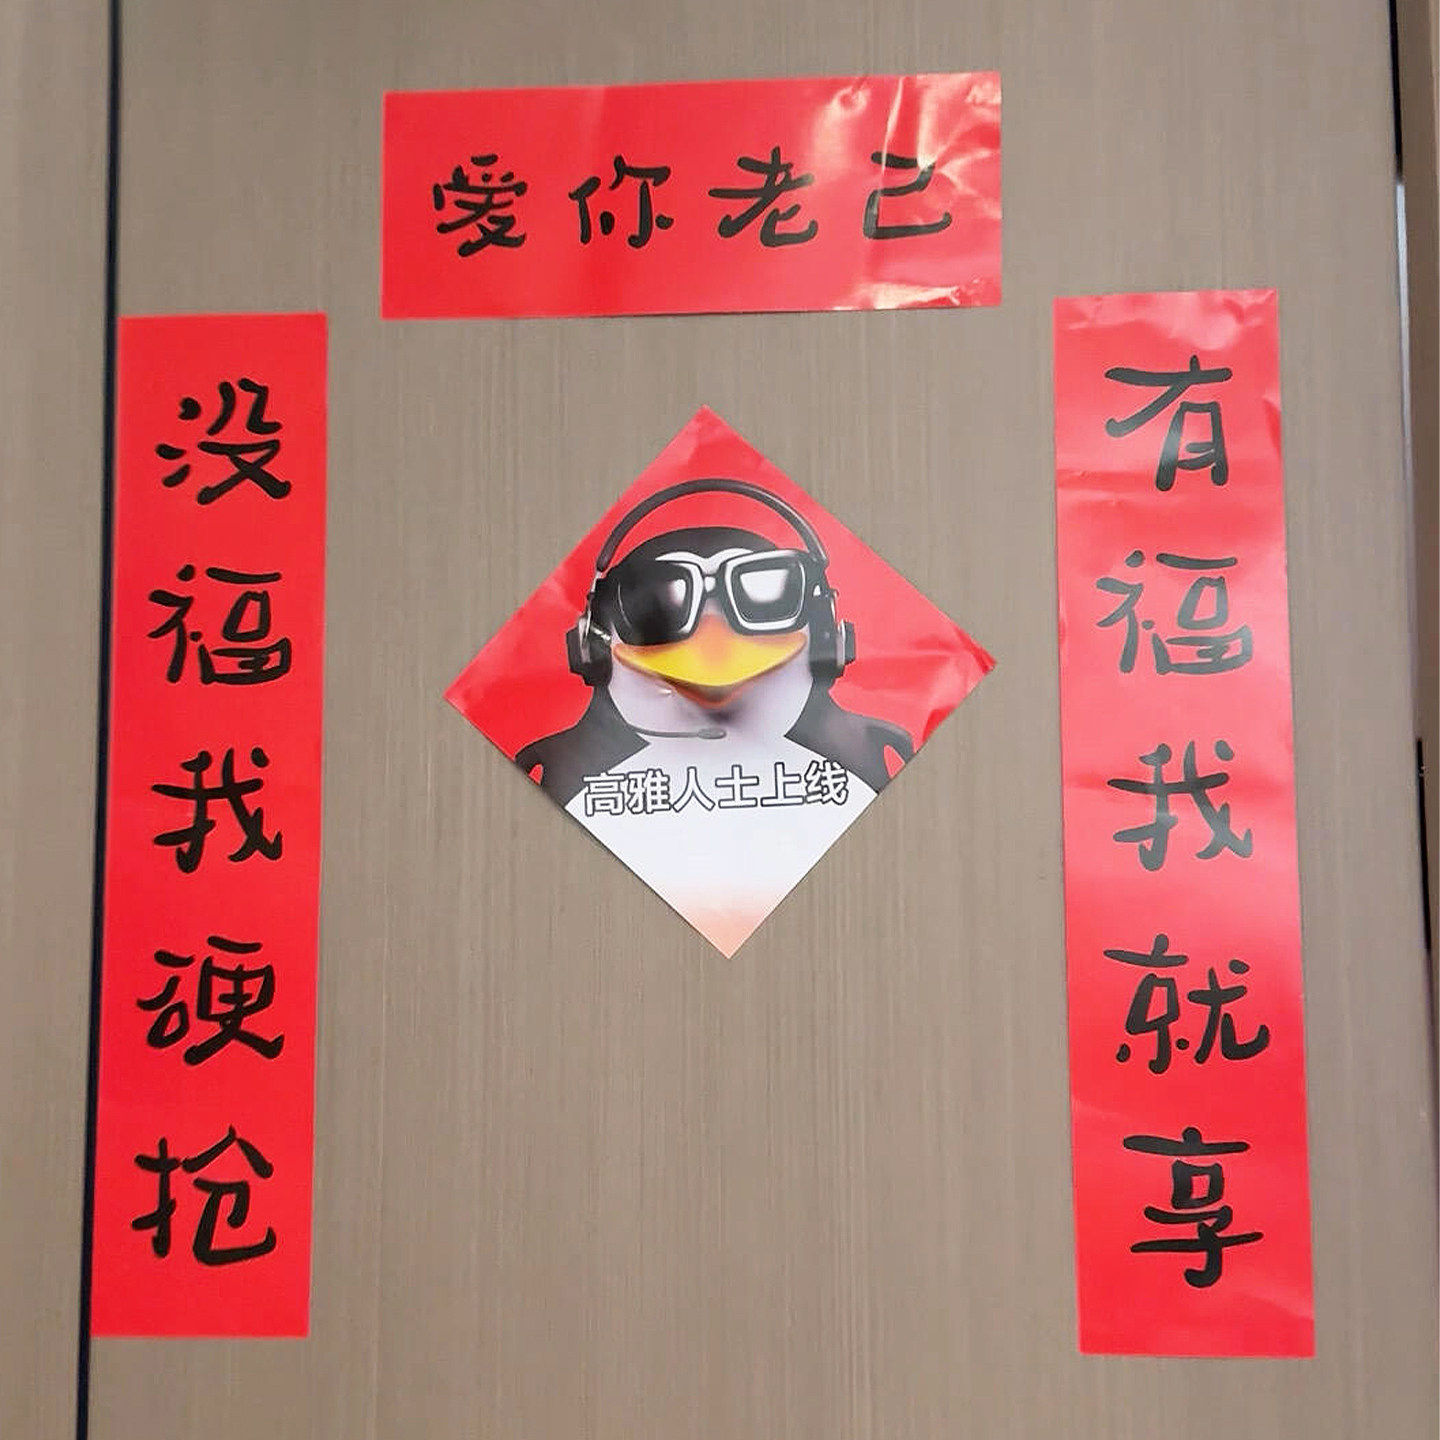 爱你老己
有福我就享
没福我硬抢
高雅人士上线